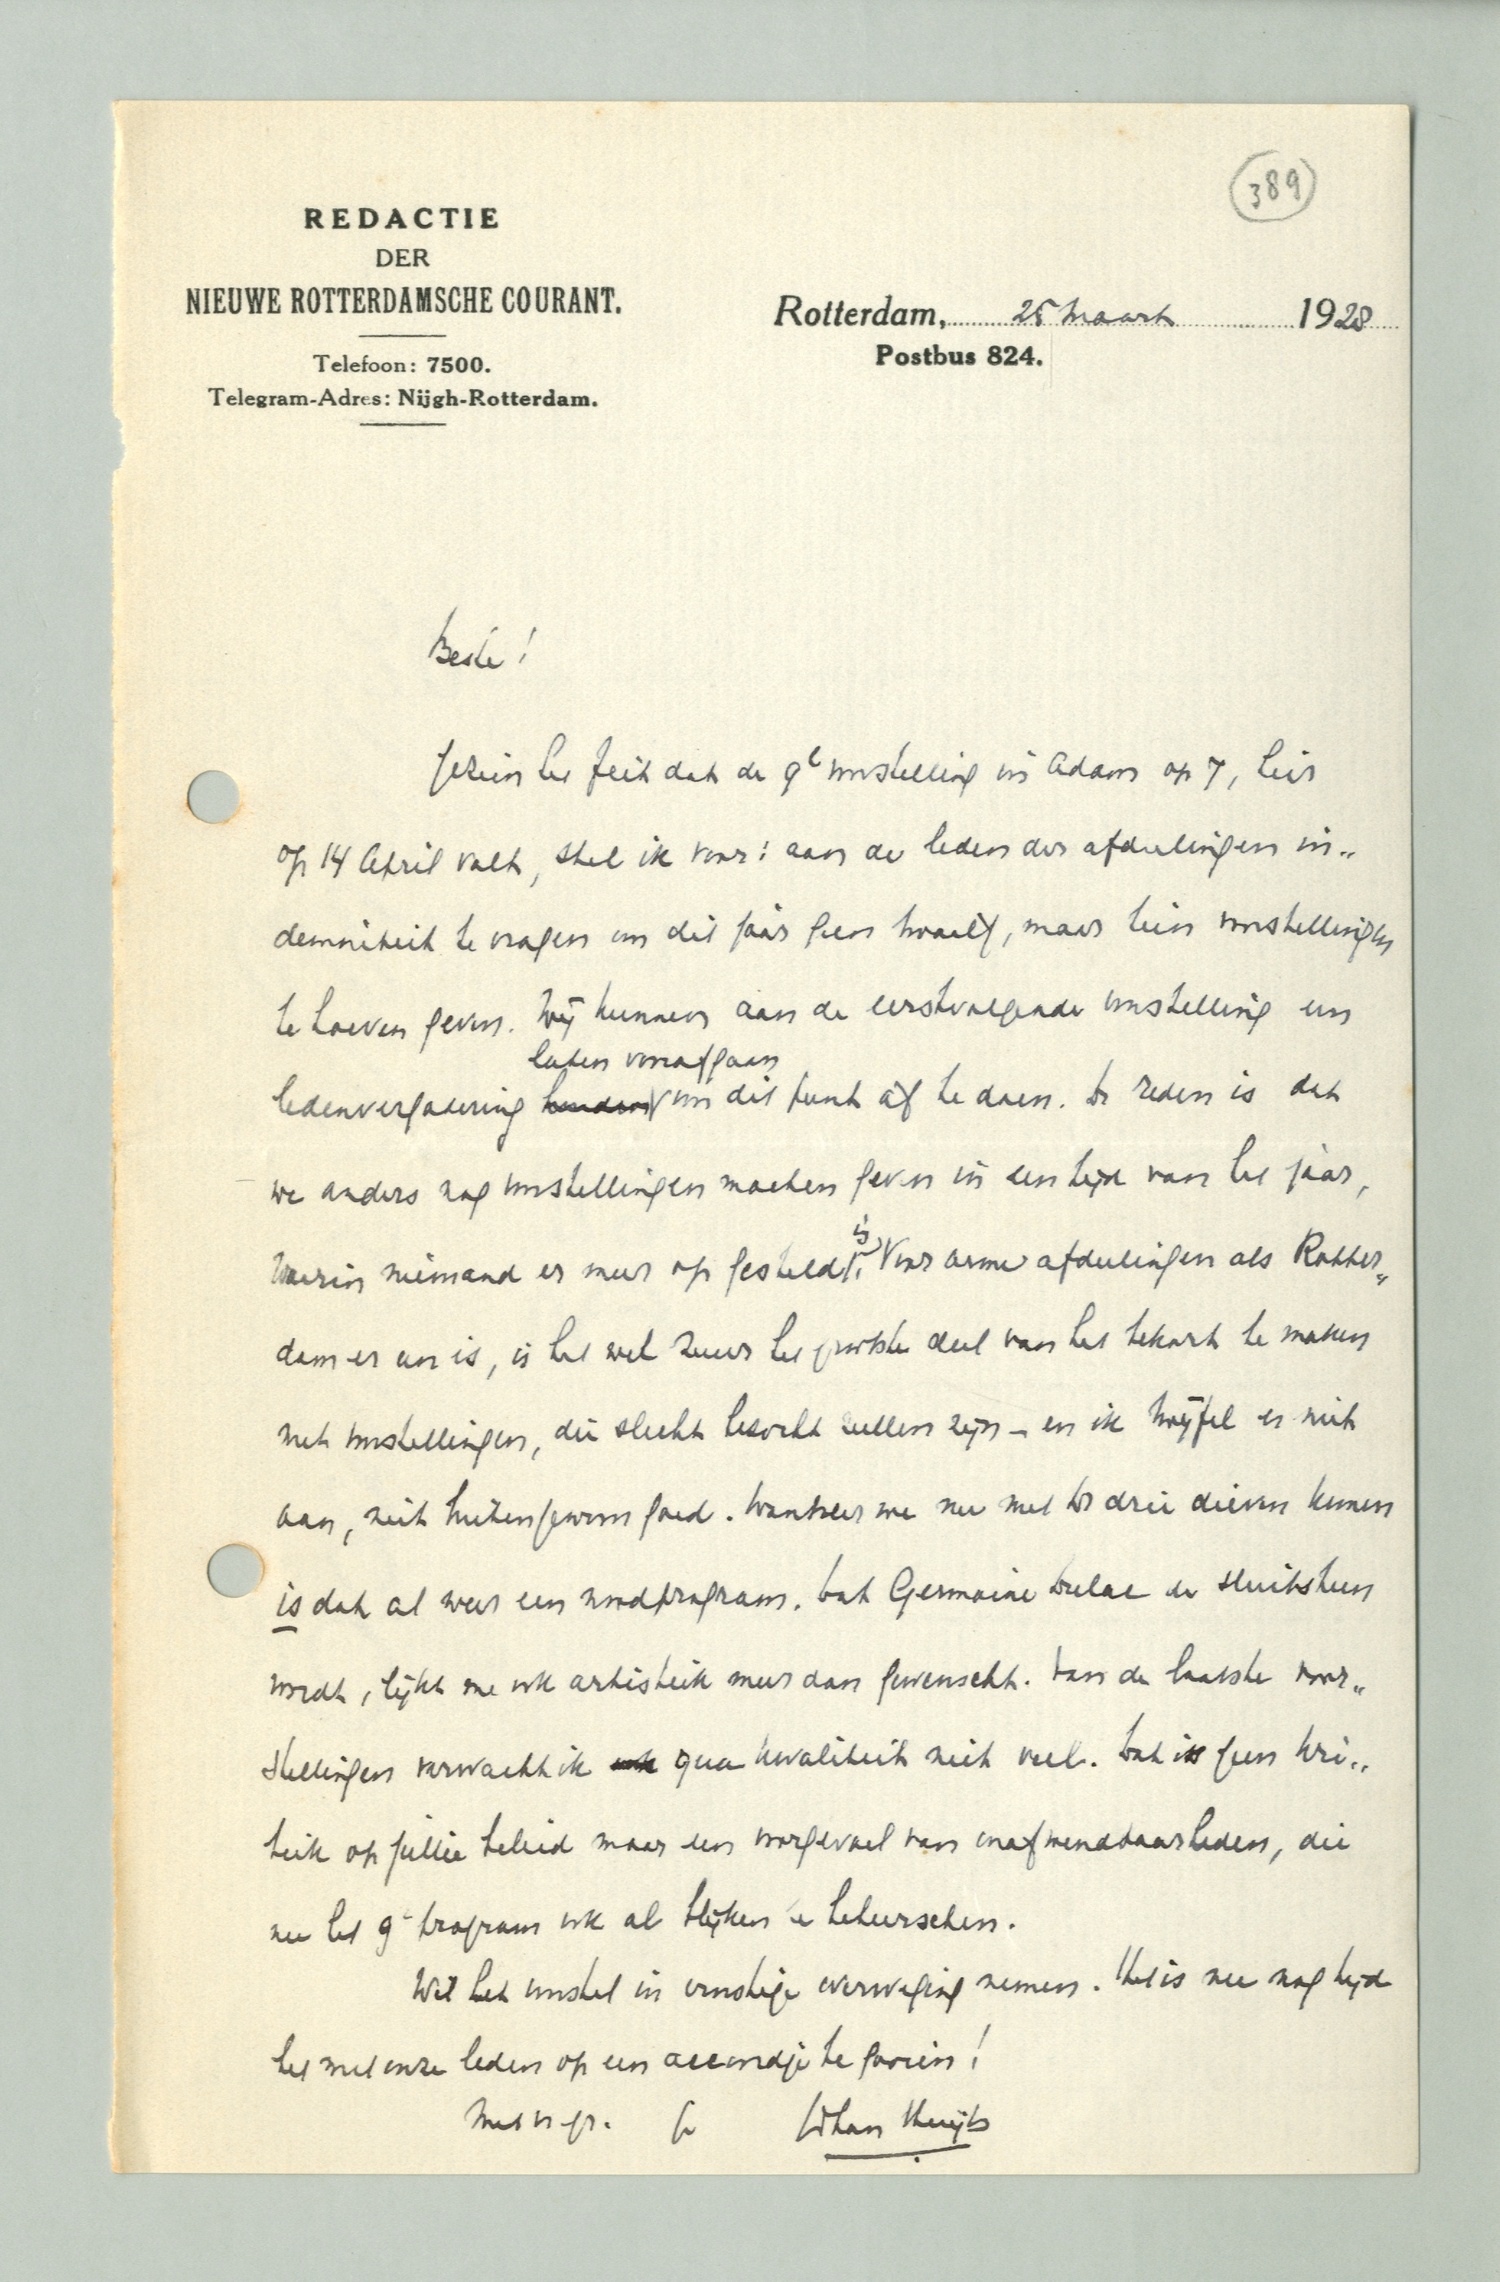 389
REDACTIE
DER
NIEUWE ROTTERDAMSCHE COURANT.
Telefoon: 7500.
Telegram-Adres: Nijgh-Rotterdam.
Rotterdam, 25 Maart 1928
Postbus 824.
Beste!
Gezien het feit dat de 9e voorstelling in Adam op 7, hier
op 14 April valt, stel ik voor: aan de leden der afdeelingen in„
demniteit te vragen om dit jaar geen twaalf, maar tien voorstellingen
te hoeven geven. Wij kunnen aan de eerstvolgende voorstelling een
laten voorafgaan
ledenvergadering houden om dit punt af te doen. De reden is dat
we anders nog voorstellingen moeten geven in een tijd van het jaar,
is
waarin niemand er meer op gesteld. Voor arme afdeelingen als Rotter„
dam er een is, is het wel zuur het grootste deel van het tekort te maken
met voorstellingen, die slecht bezocht zullen zijn – en ik twijfel er niet
aan, niet buitengewoon goed. Wanneer we nu met De drie dieven komen
is dat al weer een noodprogram. Dat Germaine Dulac de sluitsteen
wordt, lijkt me ook artistiek meer dan gewenscht. Van de laatste voor„
stellingen verwacht ik ook qua kwaliteit niet veel. Dat is geen kri„
tiek op jullie beleid maar een voorgevoel van onafwendbaarheden, die
nu het 9e program ook al blijken te beheerschen.
Wil het voorstel in ernstige overweging nemen. Het is nu nog tijd
het met onze leden op een accoordje te gooien!
Met vr. gr. Je Johan Huijts